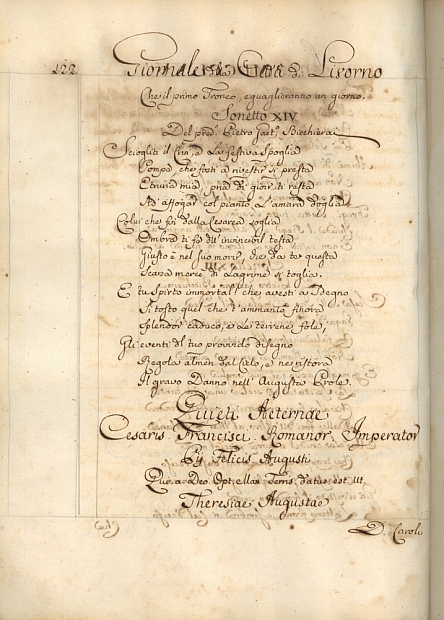 122 Giornale di Città di Livorno
Che il primo Tronco, eguaglieranno un giorno.
Sonetto XIV
Del pred.º Pietro Gaet.º Bicchierai
Sciogliti il Crin, e La festiva Spoglia
Pompa, che fosti a rivestir sì presta
Etruria mia, pria di gioir ti resta
Ad' affogar col pianto L'amara doglia
Colui che fù dalla Cesarea soglia
Ombra ti fò dell'invincibil testa
Giusto è nel suo morir, che da te questa
Scarsa mercè di Lagrime si toglia.
E tu Spirto immortal! che avesti a Sdegno
Sì tosto quel che t'ammantò finora
Splendor caduco, e Le terrene fole,
Gli eventi dl tuo provvido disegno
Regola almen dal Cielo, e ne ristora
Il gravo Danno nell'Augusta Prole.
Quieti Aeternae
Cesaris Francisci Romanor. Imperator
Pij Felicis Augusti
Qui a Deo Opt. Max. Terris datus est ut
Theresiae Augustae
D. Caroli